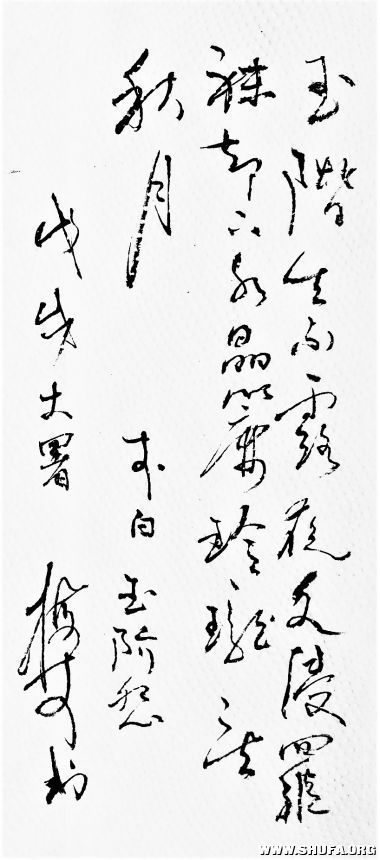 玉階生白露夜久侵羅
襪却下水晶簾玲瓏望
秋月 李白 玉阶怨
戊戌大暑 书
WWW.SHUFA.ORG